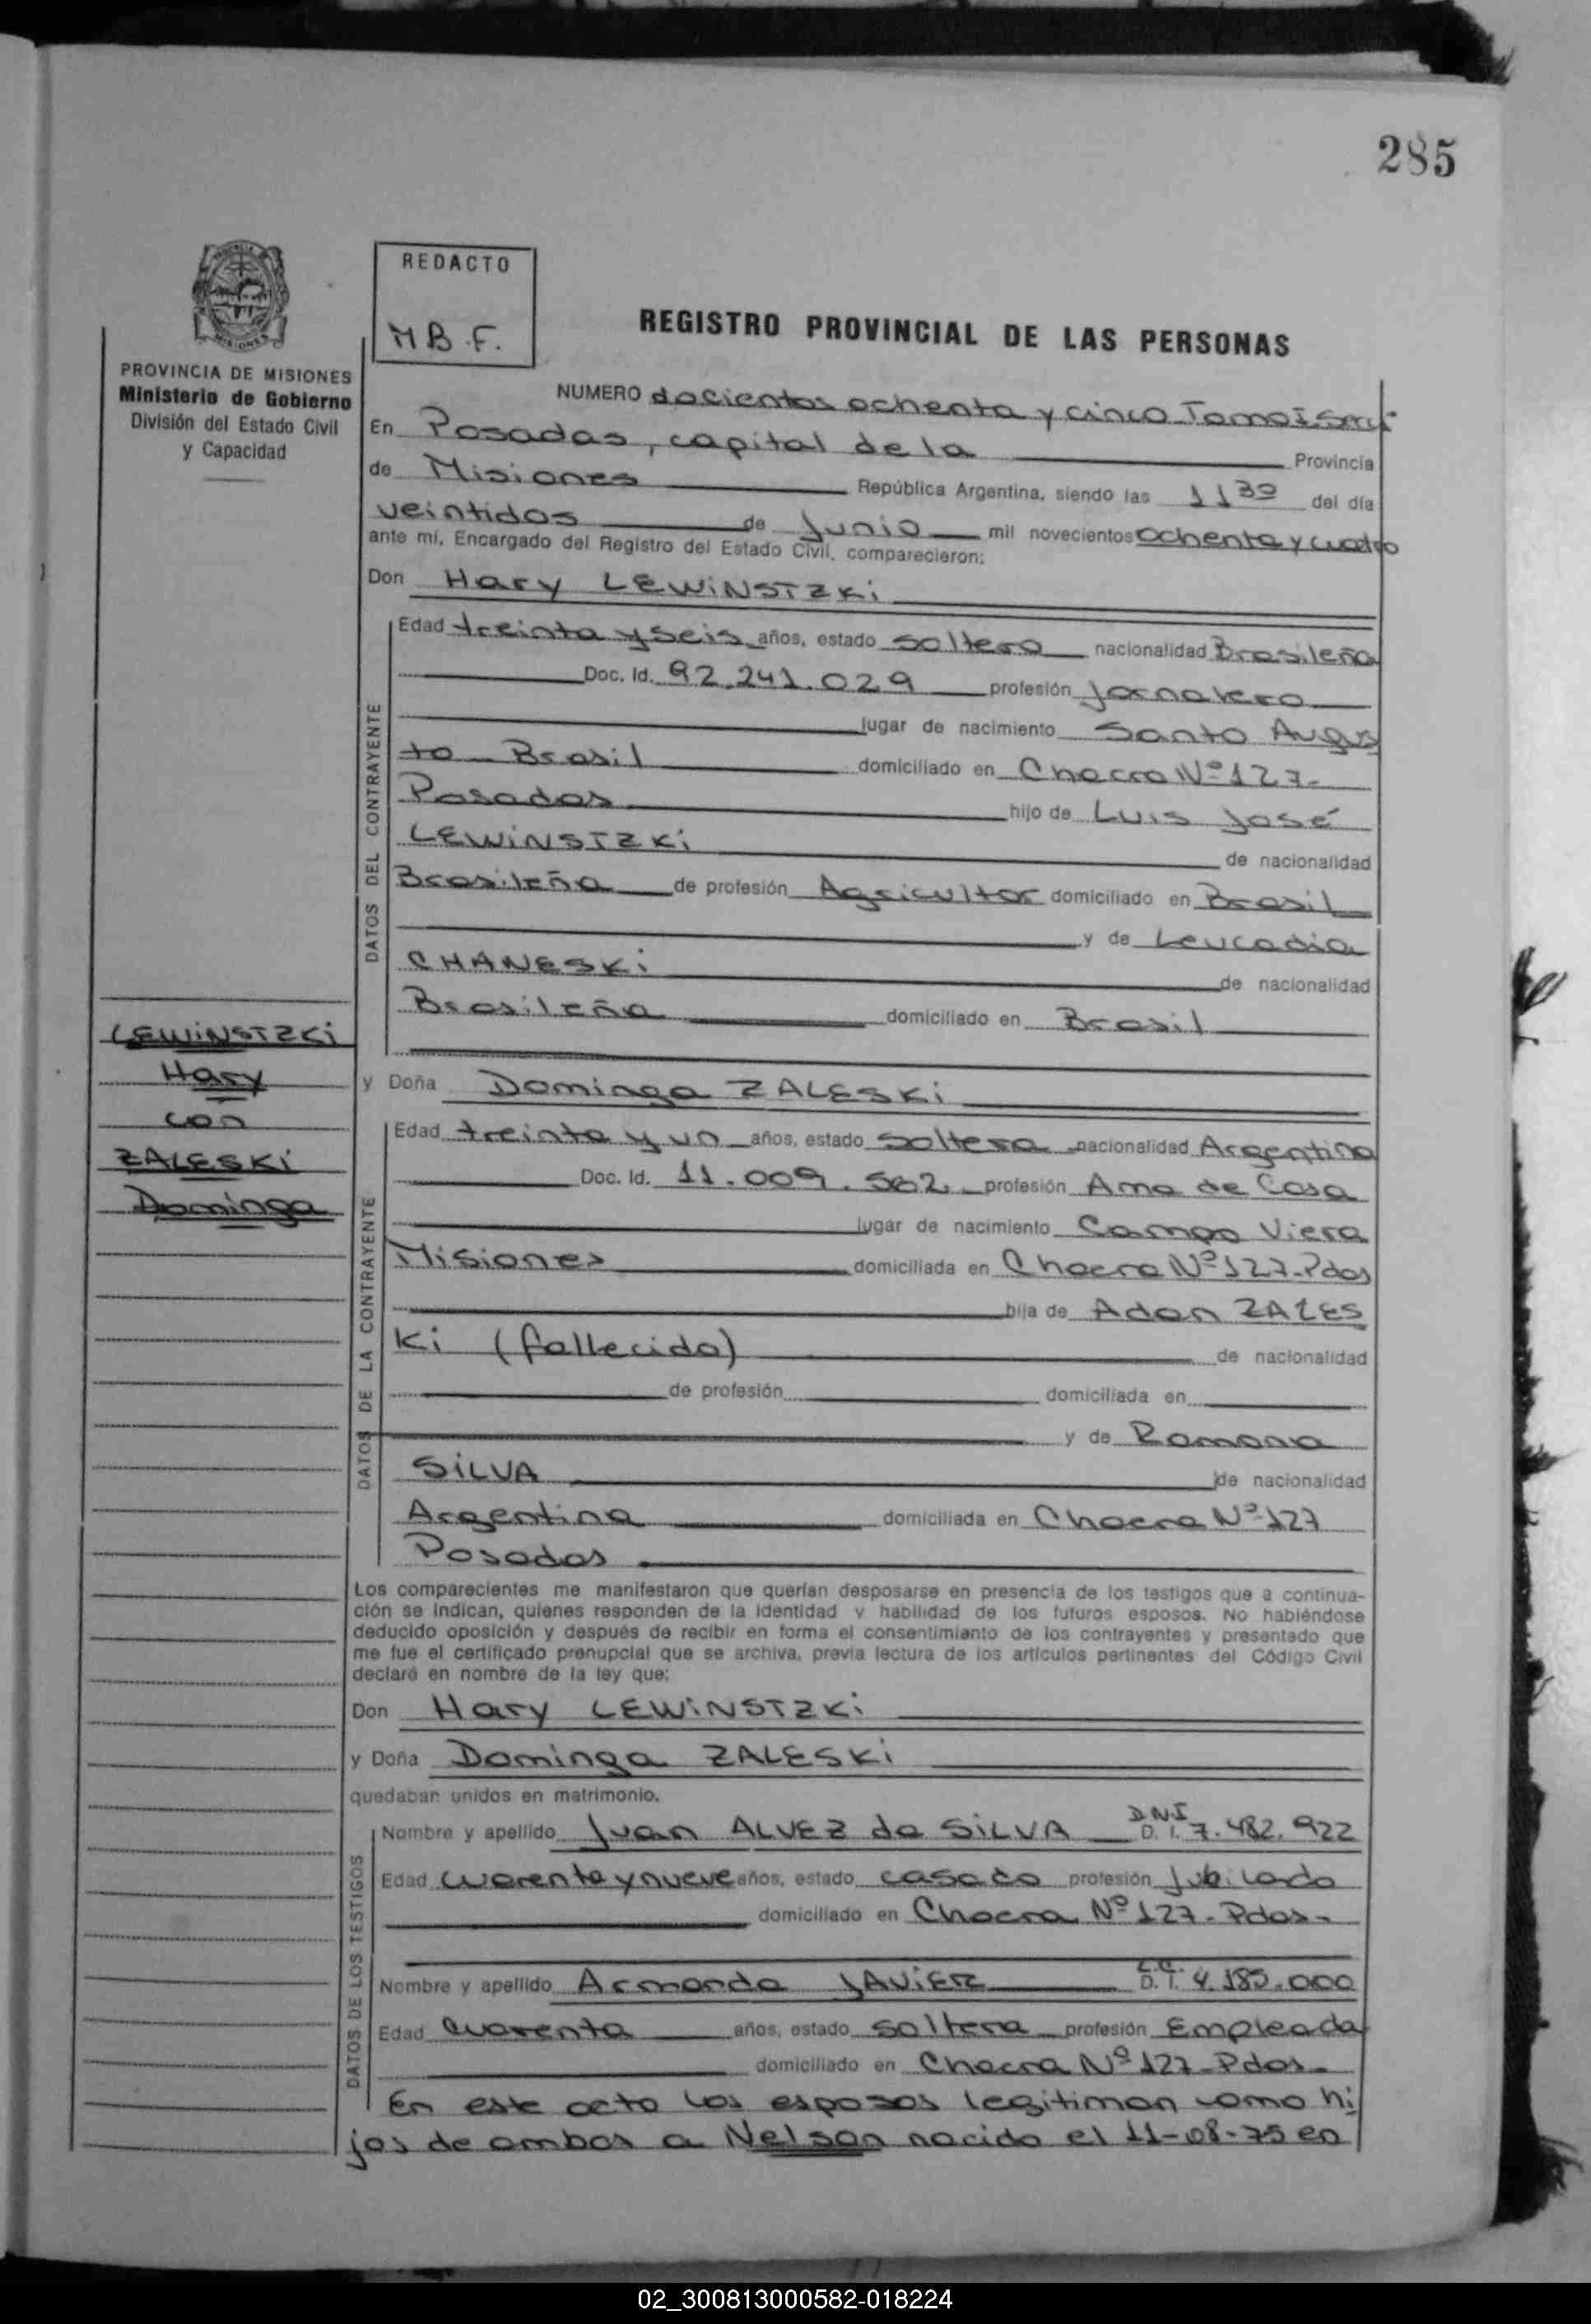 285
REDACTO
M B.F.
REGISTRO PROVINCIAL DE LAS PERSONAS
PROVINCIA DE MISIONES
Ministerio de Gobierno
División del Estado Civil
y Capacidad
NUMERO docientos ochenta y cinco Tomo I
En Posadas, capital de la Provincia
de Misiones República Argentina, siendo las 11 30 del día
veintidos de Junio mil novecientos ochenta y cuatro
ante mí, Encargado del Registro del Estado Civil, comparecieron:
Don Hary LEWiNSTZKi
DATOS DEL CONTRAYENTE
Edad treinta y seis años, estado soltero nacionalidad Brasileña
Doc. Id. 92.241.029 profesión Jornalero
lugar de nacimiento Santo Augus
to Brasil domiciliado en Chacra Nº 127-
Posadas hijo de Luis José
LEWiNSTZKi de nacionalidad
Brasileña de profesión Agricultor domiciliado en Brasil
y de Leucadia
CHANESKi de nacionalidad
Brasileña domiciliado en Brasil
LEWiNSTZKi
Hary
con
ZALESKi
Dominga
y Doña Dominga ZALESKi
DATOS DE LA CONTRAYENTE
Edad treinta y un años, estado soltera nacionalidad Argentina
Doc. Id. 11.009.562 profesión Ama de Casa
lugar de nacimiento Campo Viera
Misiones domiciliada en Chacra Nº 127-Pdas
hija de Adan ZALES
Ki (fallecido) de nacionalidad
de profesión domiciliada en
y de Ramona
SiLVA de nacionalidad
Argentina domiciliada en Chacra Nº 127
Posadas
Los comparecientes me manifestaron que querían desposarse en presencia de los testigos que a continua-
ción se indican, quienes responden de la identidad y habilidad de los futuros esposos. No habiéndose
deducido oposición y después de recibir en forma el consentimiento de los contrayentes y presentado que
me fue el certificado prenupcial que se archiva, previa lectura de los artículos pertinentes del Código Civil
declaré en nombre de la ley que:
Don Hary LEWiNSTZKi
y Doña Dominga ZALESKi
quedaban unidos en matrimonio.
DATOS DE LOS TESTIGOS
Nombre y apellido Juan ALVEZ da SiLVA D.N.I D. I. 7.482.922
Edad cuarenta y nueve años, estado casado profesión Jubilado
domiciliado en Chacra Nº 127- Pdas-
Nombre y apellido Armanda JAViER L.C. D. I. 4.185.000
Edad cuarenta años, estado soltera profesión Empleada
domiciliado en Chacra Nº 127-Pdas-
En este acto los esposos legitiman como hi
jos de ambos a Nelson nacido el 11-08-75 en
02_300813000582-018224